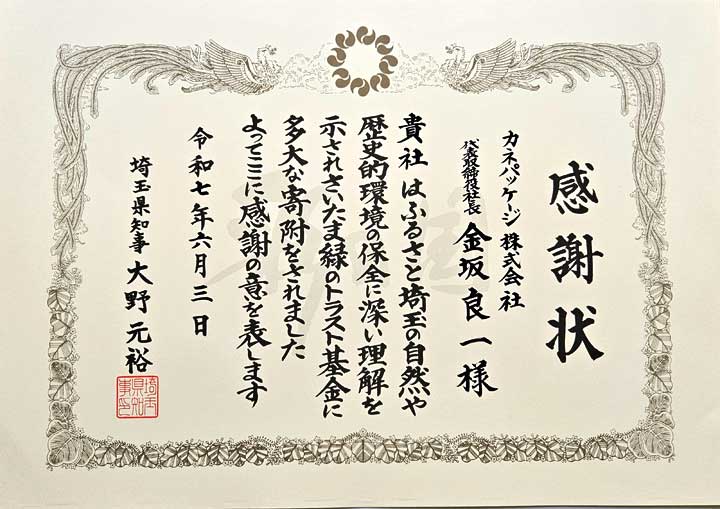 感謝状
カネパッケージ株式会社
代表取締役社長 金坂良一様
貴社はふるさと埼玉の自然や
歴史的環境の保全に深い理解を
示されさいたま緑のトラスト基金に
多大な寄附をされました
よってここに感謝の意を表します
令和七年六月三日
埼玉県知事 大野元裕
埼玉県知事印